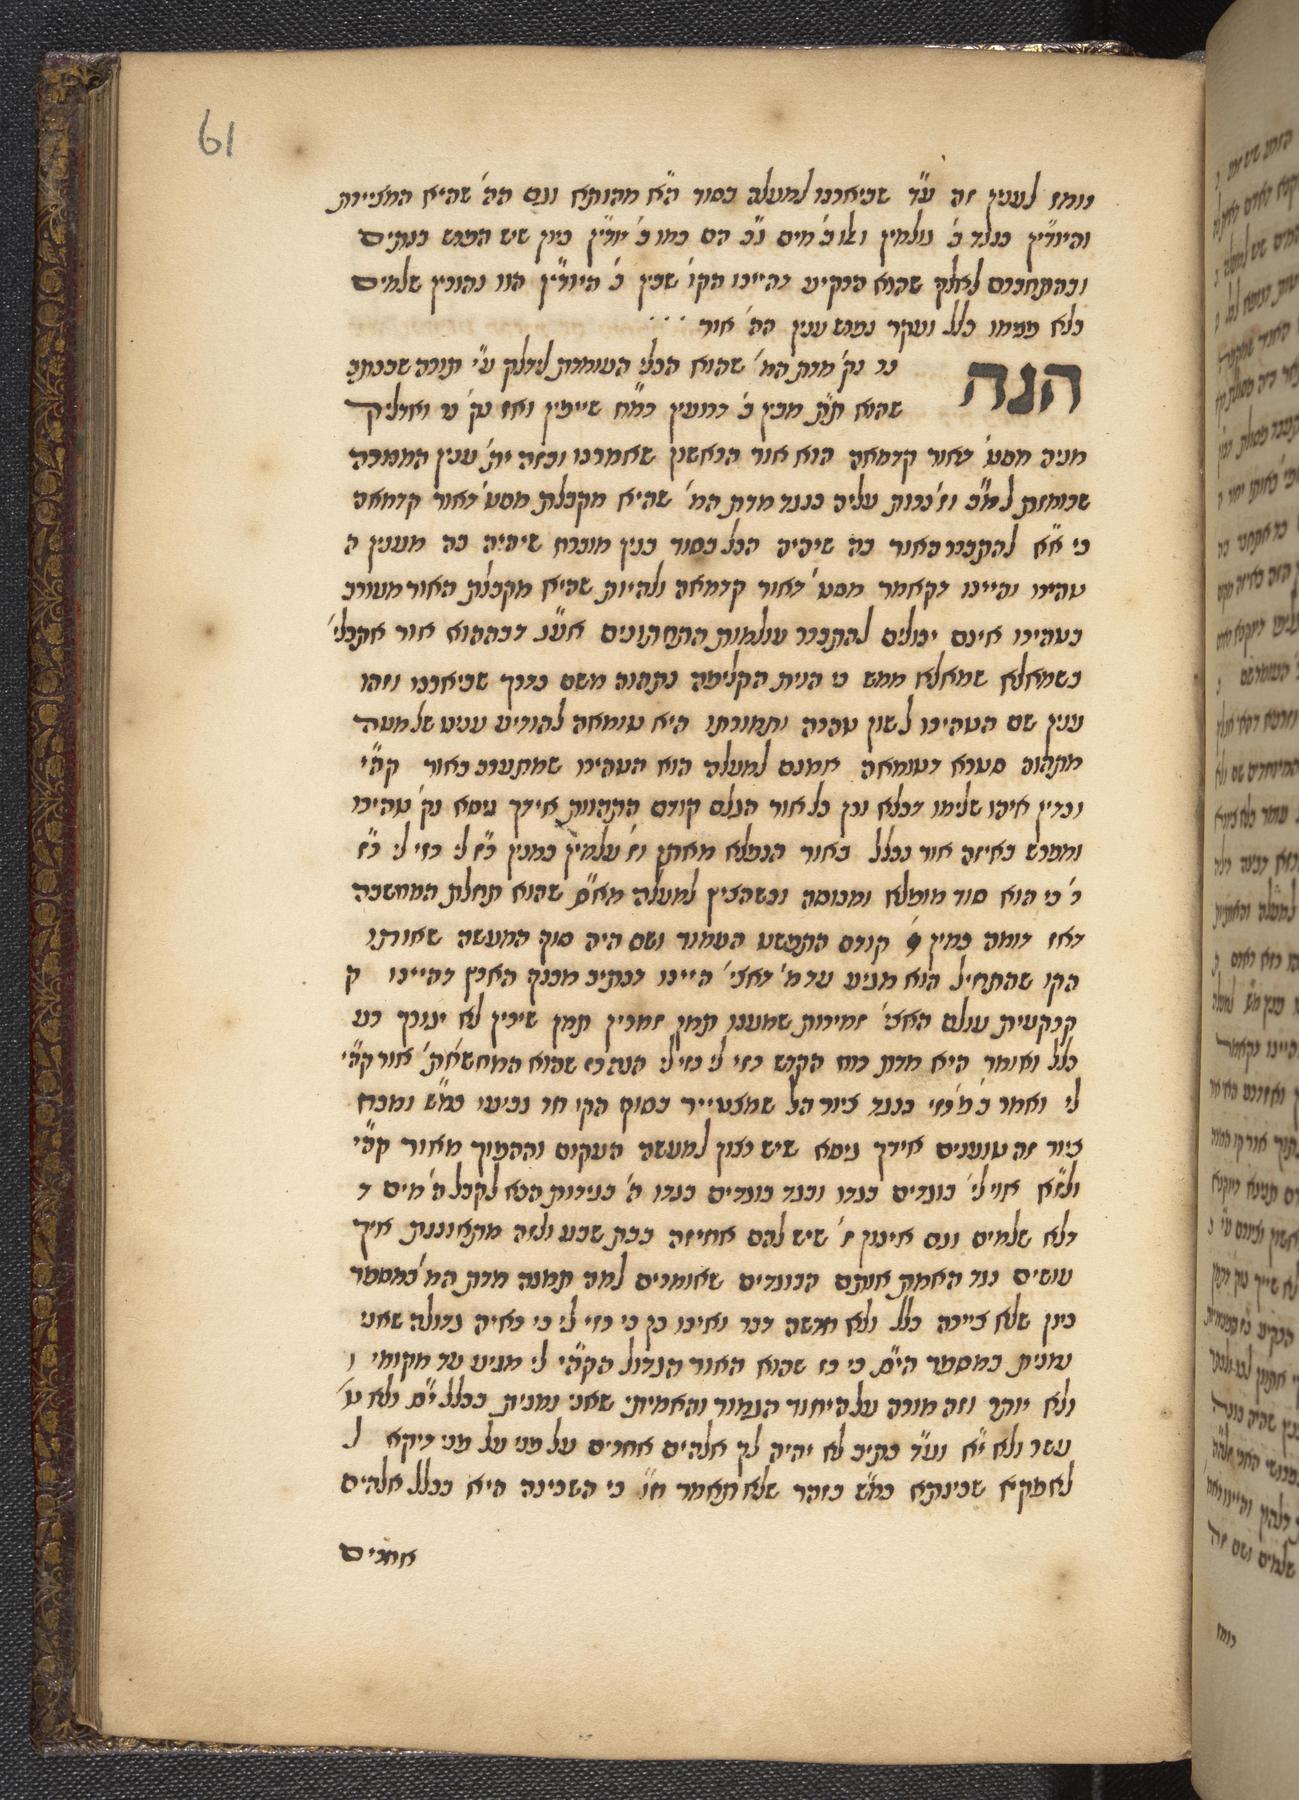 61
רומז לענין זה ע"ד שביארנו למעלה בסוד ה"א מהותא וגם הה' שהיא המציירת
והיודי"ן כנגד ב' עולמין ואו ב' מים נ"ב הם כמו ב' יודי"ן כיון שיש הפרש בנתים
ובהתחברם לאלף שהוא הרקיע דהיינו הקו' שבין ב' היודי"ן הוו נהורין שלמים
בלא פגימו כלל ועקר נפרש ענין הה' אור
הנה
נר נק' מדת המ' שהוא הכלי העומדת לידלק ע"י תורה שבכתב
שהוא ת"ת מבין ב' דרועין רמ"ח שייפין ואז נק' ע ואדליק
מניה מסט' דאור קדמאה הוא אור הראשון שאמרנו ובזה ית' ענין המנורה
שרומזת למ"ב וז' נרות עליה כנגד מדת המ' שהיא מקבלת מסט' דאור קדמאה
כי א"א להתברר באור בה שיהיה הכל בסוד בנין מוכרח שיהיה בה מענין ה
טהירו והיינו דקאמר מסט' דאור קדמאה ולהיות שהיא מקבלת האור מעורב
בטהירו אינם יכולים להתברר עולמות התחתונים אע"ג דבההוא אור אקבלי'
בשמאלא שמאלא ממש כי הוית הקליפה נתהוה משם כדרך שביארנו וזהו
ענין שם הטהירו לשון טהרה ותמורתו היא טומאה להורות ענינו של מטה
מתהוה סטרא דטומאה אמנם למעלה הוא הטהירו שמתערב באור קה"י
וכדין איהו שלימו דכלא וכן כל אור הנעלם קודם התהוות אידך גיסא נק' טהירו
ומפרש באיזה אור נכלל באור הנפלא מאתן וז' עלמין כמנין ר"ז לי רזי לי ר"ז
ר' כי הוא סוד מופלא ומכוסה וכשהציץ למעלה מא"ס שהוא תחלת המחשבה
דאז דומה כמין קודם התפשט העמוד ושם היה סוף המעשה שאותו
הקו שהתחיל הוא מגיע עד מ' דאצי' היינו דכתיב מכנף הארץ דהיינו ק
קרקעית עולם האצי' זמירות שמענו תמן זמרין תמן שירין לא יגורך רע
כלל ואומר היא מדת רוח הקדש רזי לי רזי לי הנה רז שהוא המחשאת' אור קה"י
לי ואמר ב' פ' רזי כנגד ציור הב' שמצטייר בסוף הקו חד נביעו כמ"ש ומכח
ציור זה טוענים אידך גיסא שיש רצון למעשה העקום וההפוך מאור קה"י
ולז"א אוי לי בוגדים בגדו ובגד בוגדים בגדו ה' בגידות הבא לקבל ה' מים ד
דלא שלמים וגם אינון ז' שיש להם אחיזה בבת שבע ולזה מתאוננת איך
עושים נגד האמת אותם הבוגדים שאומרים למה תמנה מדת המ' במספר
כיון שלא צייבה כלל ולא חדשה דבר ואינו כן כי רזי לי כי ראיה גדולה שאני
נמנית במספר הי"ס כי רז שהוא האור הגדול הקה"י לי מגיע עד מקומי ו
ולא יותר וזה מורה על היחוד הגמור והאמיתי שאני נמנית בכלל י"ס ולא ט'
עשר ולא י"א וע"ד כתיב לא יהיה לך אלהים אחרים על פני על פני דיקא ל
לאפקא שכינתא כמ"ש בזהר שלא תאמר ח"ו כי השכינה היא בכלל אלהים
אחרים